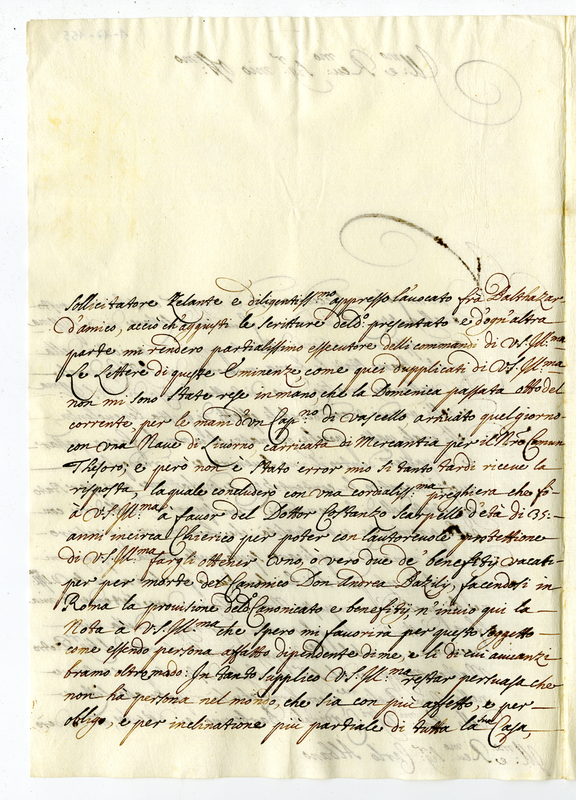 sollicitatore Zelante e diligentiss:mo appresso l'auocato frà Balthazar
d'amico, acciò ch'aggiusti le scritture del do: presentato e d'ogn'altra
parte mi renderò partialissimo essecutore delli commandi di V.S. Ill:ma
Le Lettere di queste Eminenze come quei dupplicati di V.S. Ill:ma
non mi sono state rese in mano che la Domenica passata otto del
corrente, per le mani d'vn Cap:no di vascello arriuato quel giorno
con vna Naue di Liuorno carricata di Mercantia per il Nro Comun
Thesoro, e però non è stato error mio si tanto tardi riceue la
risposta, la quale concluderò con vna cordialiss:ma preghiera che fò
à V.S. Ill:ma à fauor del Dottor Costanzo Scarpello d'età di 35:
anni incirca Chierico per poter con l'autoreuole protettione
di V.S. Ill:ma fargli ottener vno, ò vero due de' benefitij vacati
per per morte del Canonico Don Andrea Bazilij, facendosi in
Roma la prouisione del do Canonicato e benefitij, n'inuio qui la
Nota à V.S. Ill:ma che spero mi fauorirà per questo soggetto
come essendo persona affatto dipendente di me, e li di cui auuanzi
bramo oltre modo: In tanto supplico V.S. Ill:ma restar persuasa che
non hà persona nel mondo, che sia con più affetto, e per
obligo, e per inclinatione più partiale di tutta la sua Casa,